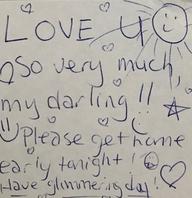 LOVE U
So very much,
my darling!!
Please get home
early tonight!
Have glimmering day!